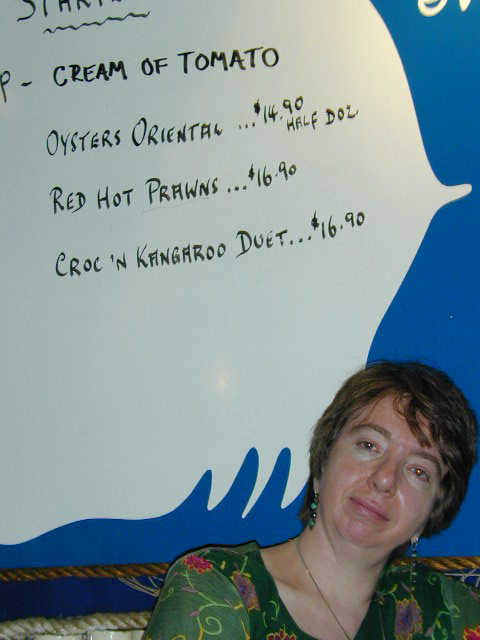 P - CREAM OF TOMATO
OYSTERS ORIENTAL ... $14.90
HALF DOZ
RED HOT PRAWNS ... $16.90
CROC 'N KANGAROO DUET... $16.90